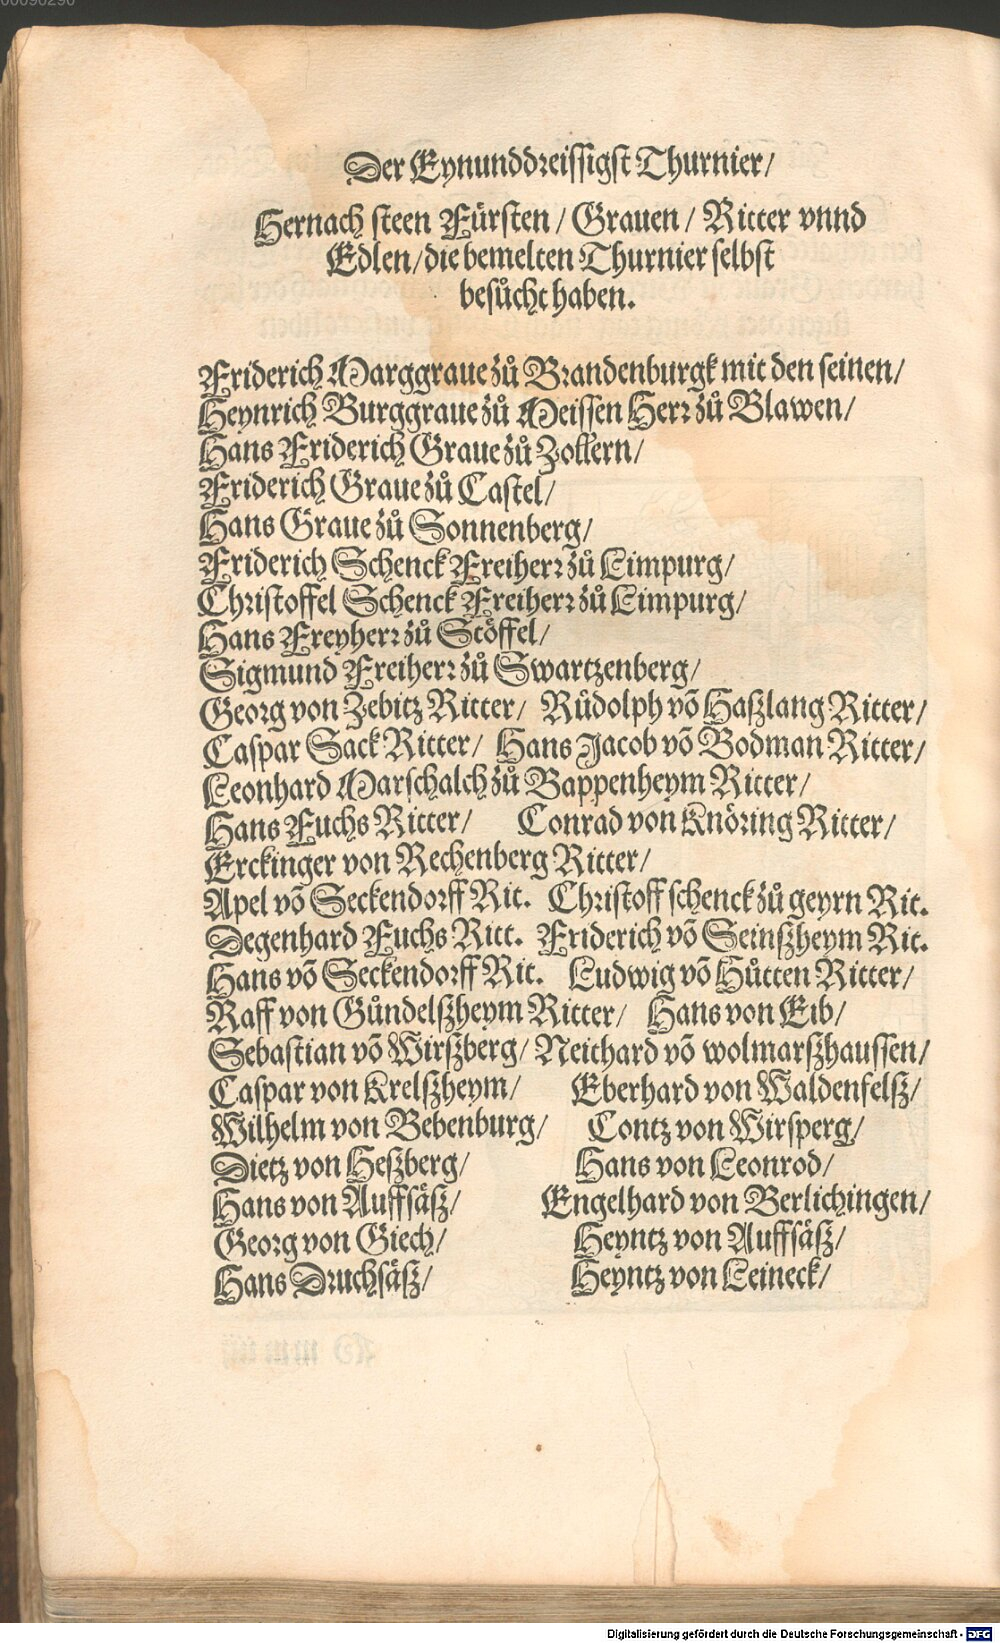 00090290
Der Eynunddreissigst Thurnier/
Hernach steen Fürsten / Grauen / Ritter vnnd
Edlen/ die bemelten Thurnier selbst
besůcht haben.
Friderich Marggraue zů Brandenburgk mit den seinen/
Heynrich Burggraue zů Meissen Herr zů Blawen/
Hans Friderich Graue zů Zollern/
Friderich Graue zů Castel/
Hans Graue zů Sonnenberg/
Friderich Schenck Freiherr zů Limpurg/
Christoffel Schenck Freiherr zů Limpurg/
Hans Freyherr zů Stöffel/
Sigmund Freiherr zů Swartzenberg/
Georg von Zebitz Ritter/ Růdolph võ Haßlang Ritter/
Caspar Sack Ritter/ Hans Jacob võ Bodman Ritter/
Leonhard Marschalch zů Bappenheym Ritter/
Hans Fuchs Ritter/ Conrad von Knöring Ritter/
Erckinger von Rechenberg Ritter/
Apel võ Seckendorff Rit. Christoff schenck zů geyrn Rit.
Degenhard Fuchs Ritt. Friderich võ Seinßheym Rit.
Hans võ Seckendorff Rit. Ludwig võ Hůtten Ritter/
Raff von Gůndelßheym Ritter/ Hans von Eib/
Sebastian võ Wirßberg/ Neithard võ wolmarßhaussen/
Caspar von Krelßheym/ Eberhard von Waldenfelß/
Wilhelm von Bebenburg/ Contz von Wirsperg/
Dietz von Heßberg/ Hans von Leonrod/
Hans von Auffsäß/ Engelhard von Berlichingen/
Georg von Giech/ Heyntz von Auffsäß/
Hans Druchsäß/ Heyntz von Leineck/
Digitalisierung gefördert durch die Deutsche Forschungsgemeinschaft - DFG